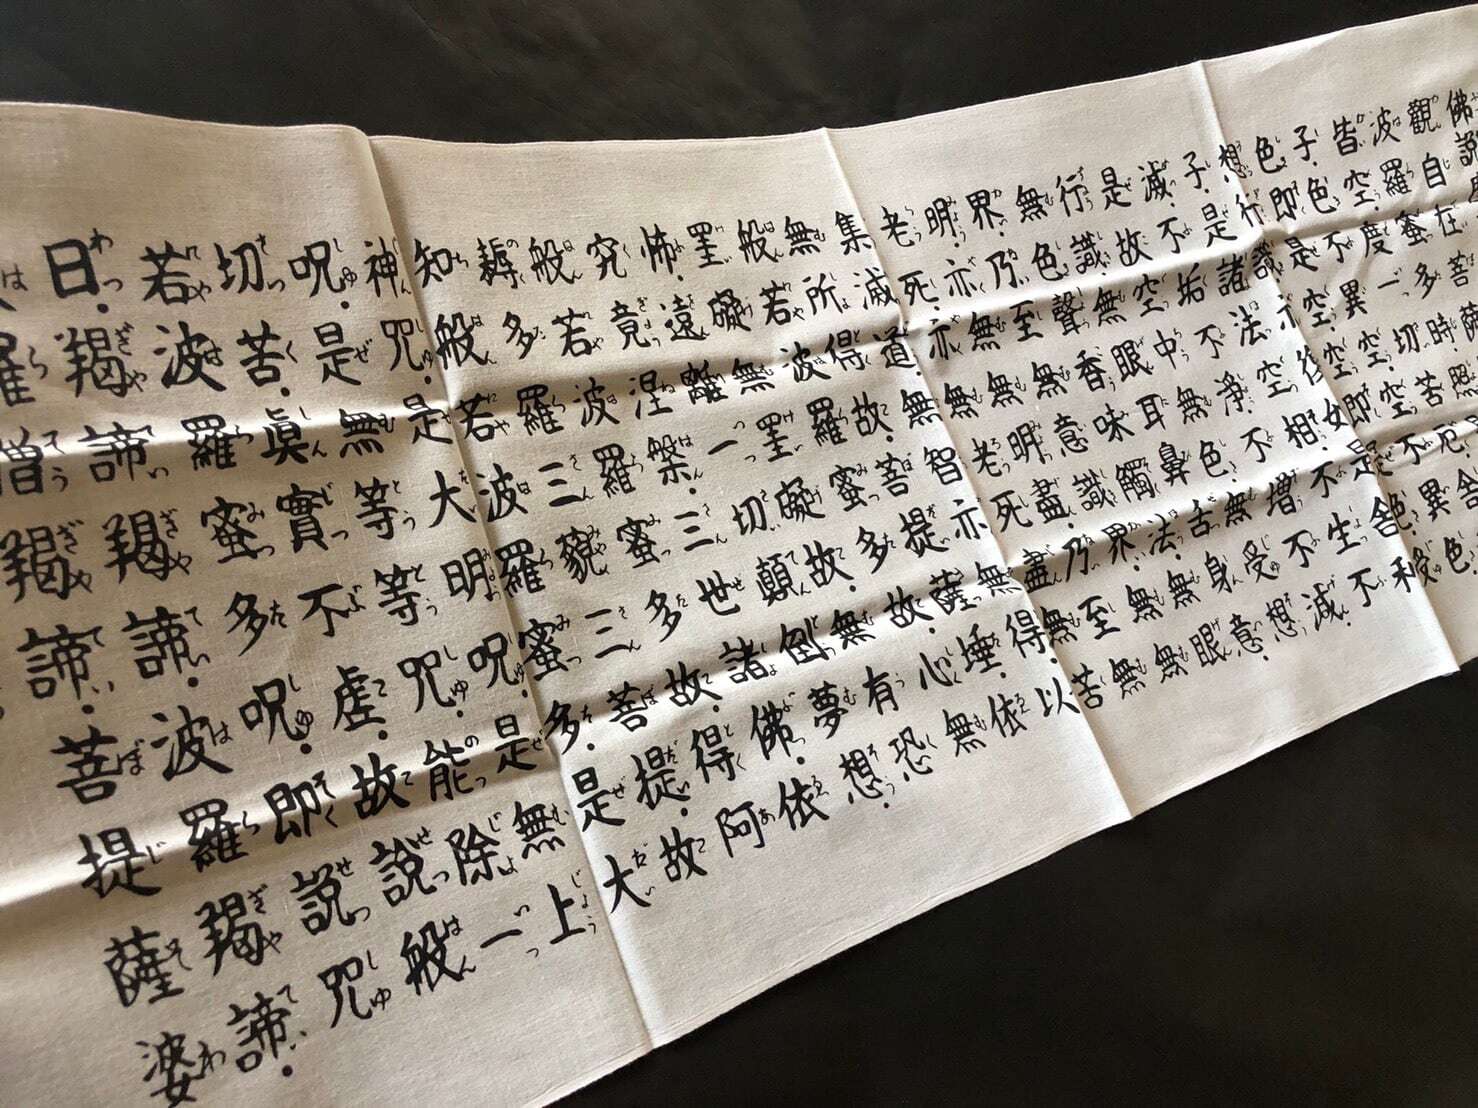 佛説
觀自在菩薩
波羅蜜多時照
皆空度一切苦厄舍
子色不異空空不異色
色即是空空即是色受
想行識亦復如是舍利
子是諸法空相不生不
滅不垢不淨不增不減
是故空中無色無受想
行識無眼耳鼻舌身意
無色聲香味觸法無眼
界乃至無意識界無無
明亦無無明盡乃至無
老死亦無老死盡無苦
集滅道無智亦無得以
無所得故菩提薩埵依
般若波羅蜜多故心無
罣礙無罣礙故無有恐
怖遠離一切顛倒夢想
究竟涅槃三世諸佛依
般若波羅蜜多故得阿
耨多羅三藐三菩提故
知般若波羅蜜多是大
神咒是大明呪是無上
呪是無等等咒能除一
切苦眞實不虛故説般
若波羅蜜多呪即説咒
日羯諦羯諦波羅羯諦
羅僧羯諦菩提薩婆